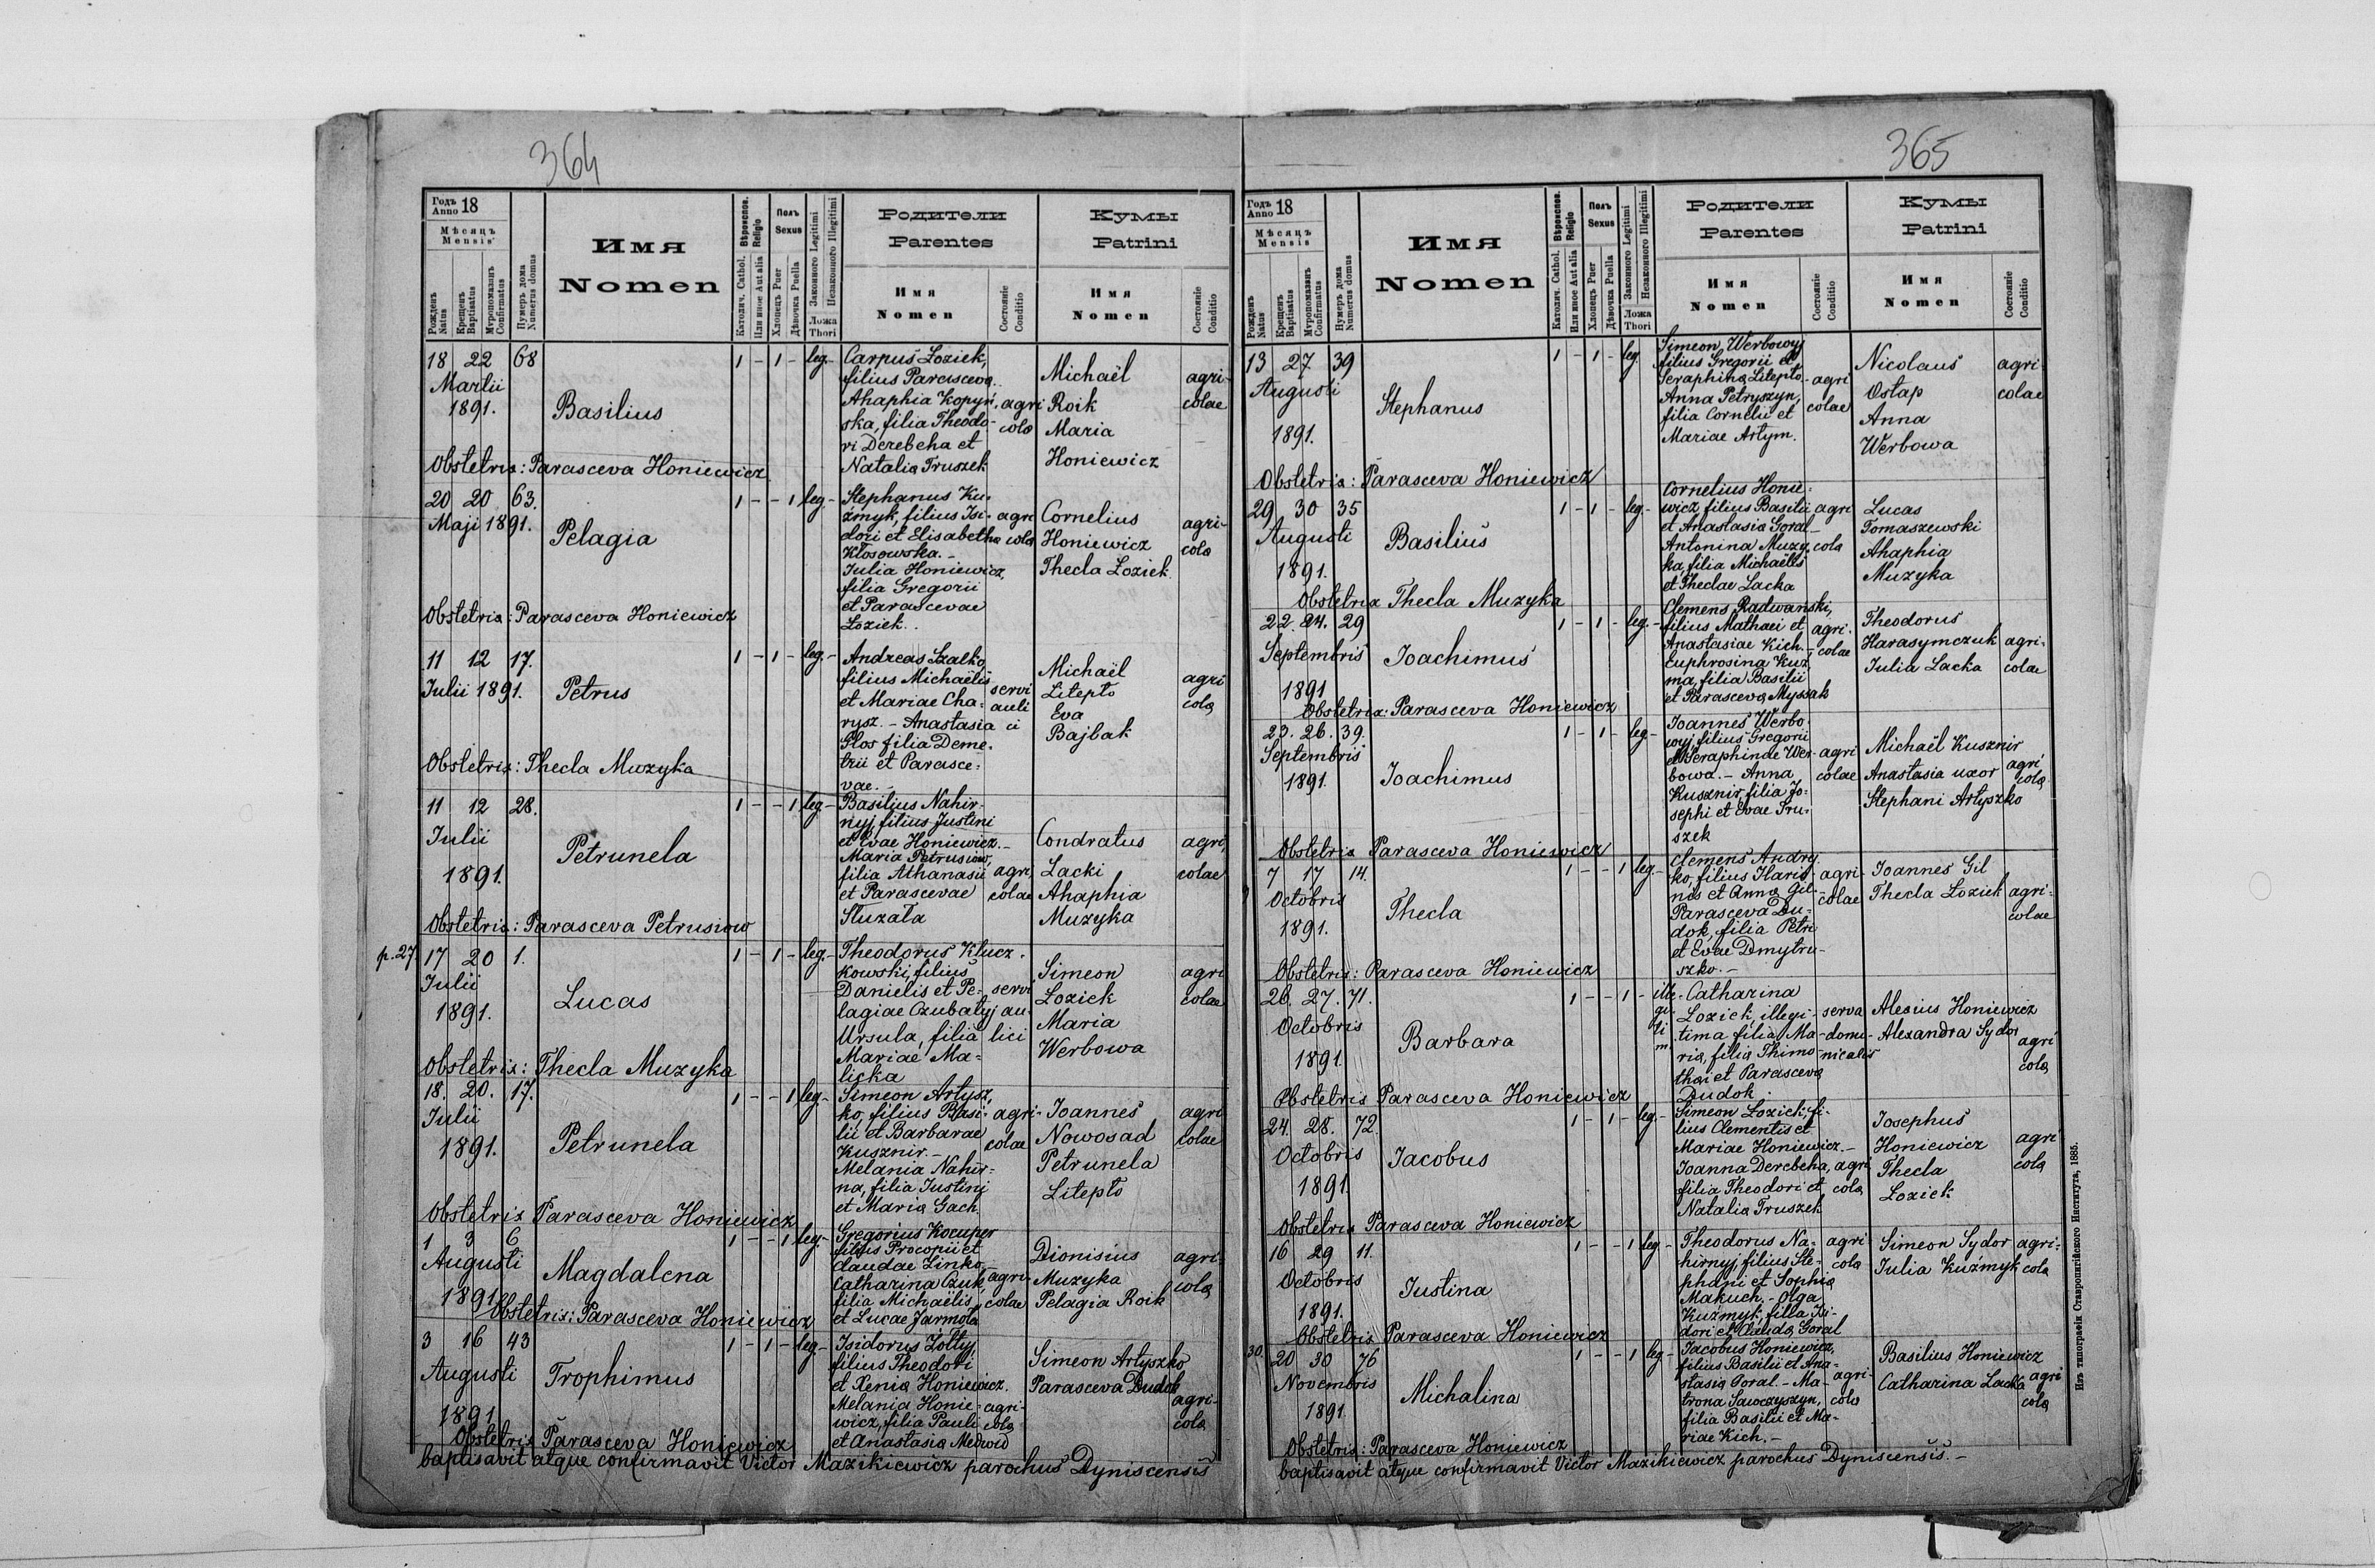 364
Годъ Anno 18
Мѣсяцъ Mensis
Рожденъ Natus
Крещенъ Baptisatus
Мѵропомазнъ Confirmatus
Нумеръ дома Numerus domus
Имя
Nomen
Вѣроиспов. Religio
Католич. Cathol.
Или иное Aut alia
Полъ Sexus
Хлопецъ Puer
Дѣвочка Puella
Законного Legitimi
Незаконного Illegitimi
Ложа Thori
Родители
Parentes
Имя
Nomen
Состояніе Conditio
Кумы
Patrini
Имя
Nomen
Состояніе Conditio
18 22 68
Martii
1891.
Basilius
1 - 1 - leg.-
Carpus Loziek,
filius Parasceva.
Ahaphia Kopyń-
ska, filia Theodo-
ri Derebeha et
Natalia Truszek
agri
cola
Michaël
Roik
Maria
Honiewicz
agri-
colae
Obstetrix: Parasceva Honiewicz
20 20 63.
Maji 1891.
Pelagia
1 - - 1 leg.-
Stephanus Ku-
źmyk, filius Isi-
dori et Elisabetha
Kłosowska.-
Julia Honiewicz,
filia Gregorii
et Parascevae
Loziek.
agri
cola
Cornelius
Honiewicz
Thecla Loziek
agri-
cola
Obstetrix: Parasceva Honiewicz
11 12 17.
Julii 1891.
Petrus
1 - 1 - leg.-
Andreas Szalko,
filius Michaëlis
et Mariae Cha-
rysz.- Anastasia
Głos filia Deme-
trii et Parasce-
vae.-
servi
auli
ci
Michaël
Litepto
Eva
Bajbak
agri
cola
Obstetrix: Thecla Muzyka
11 12 28.
Julii
1891.
Petrunela
1 - - 1 leg.-
Basilius Nahir-
nyj, filius Justini
et Evae Honiewicz.-
Maria Petrusiow,
filia Athanasii
et Parascevae
Słuzała
agri
colae
Condratus
Lacki
Ahaphia
Muzyka
agri,
colae
Obstetrix: Parasceva Petrusiow
p. 27.
17 20 1.
Julii
1891.
Lucas
1 - 1 - leg.-
Theodorus Klucz-
kowski, filius
Danielis et Pe-
lagiae Czubatyj
Ursula, filia
Mariae Ma-
licka
servi
au-
lici
Simeon
Loziek
Maria
Werbowa
agri
colae
Obstetrix: Thecla Muzyka
18. 20. 17.
Julii
1891.
Petrunela
1 - - 1 leg.-
Simeon Artysz-
ko, filius Basi-
lii et Barbarae
Kusznir.-
Melania Nahir-
na, filia Justini
et Maria Gach.
agri-
colae
Joannes
Nowosad
Petrunela
Litepto
agri
colae
Obstetrix Parasceva Honiewicz
1 3 6
Augusti
1891
Magdalena
1 - - 1 leg.-
Gregorius Kocuper
filius Procopii et
Claudae Zinko.-
Catharina Czuk,
filia Michaëlis
et Lucae Jarmoła
agri-
colae
Dionisius
Muzyka
Pelagia Roik
agri-
cola
Obstetrix: Parasceva Honiewicz
3 16 43
Augusti
1891
Trophimus
1 - 1 - leg.-
Isidorus Zołtyj,
filius Theodori
et Xenia Honiewicz.
Melania Honie-
wicz, filia Pauli
et Anastasia Medwid
agri-
cola
Simeon Artyszko
Parasceva Dudok
agri-
cola
Obstetrix Parasceva Honiewicz
baptisavit atque confirmavit Victor Mazikiewicz parochus Dyniscensis
365
Годъ Anno 18
Мѣсяцъ Mensis
Рожденъ Natus
Крещенъ Baptisatus
Мѵропомазнъ Confirmatus
Нумеръ дома Numerus domus
Имя
Nomen
Вѣроиспов. Religio
Католич. Cathol.
Или иное Aut alia
Полъ Sexus
Хлопецъ Puer
Дѣвочка Puella
Законного Legitimi
Незаконного Illegitimi
Ложа Thori
Родители
Parentes
Имя
Nomen
Состояніе Conditio
Кумы
Patrini
Имя
Nomen
Состояніе Conditio
13 27 39
Augusti
1891.
Stephanus
1 - 1 - leg.
Simeon Werbowyj
filius Gregorii et
Seraphina Litepto-
Anna Petryszyn,
filia Cornelii et
Mariae Artym.
agri
colae
Nicolaus
Ostap
Anna
Werbowa
agri-
colae
Obstetrix: Parasceva Honiewicz
29 30 35
Augusti
1891.
Basilius
1 - 1 - leg.-
Cornelius Honie-
wicz filius Basilii
et Anastasia Goral-
Antonina Muzy-
ka, filia Michaëlis
et Theclae Lacka
agri
cola
Lucas
Tomaszewski
Ahaphia
Muzyka
Obstetrix Thecla Muzyka
22. 24. 29
Septembris
1891
Joachimus
1 - 1 - leg.-
Clemens Radwański,
filius Mathaei et
Anastasiae Kich.-
Euphrosina Kuź-
ma, filia Basilii
et Parasceva Myssak
agri-
colae
Theodorus
Harasymczuk
Julia Lacka
agri-
colae
Obstetrix: Parasceva Honiewicz
23. 26. 39.
Septembris
1891.
Joachimus
1 - 1 - leg-
Joannes Werbo-
wyj, filius Gregorii
et Seraphinae Wer-
bowa.- Anna
Kusznir, filia Jo-
sephi et Evae Tru-
szek
agri
colae
Michaël Kusznir
Anastasia uxor
Stephani Artyszko
agri
cola
Obstetrix Parasceva Honiewicz
7 17 14.
Octobris
1891.
Thecla
1 - - 1 leg.-
Clemens Andry-
ko, filius Hario-
nis et Anna Gil-
Parasceva Du-
dok, filia Petri
et Evae Dmytru-
szko.-
agri-
colae
Joannes Gil
Thecla Loziek
agri-
colae
Obstetrix: Parasceva Honiewicz
26. 27. 71.
Octobris
1891
Barbara
1 - - 1 - ille-
gi-
ti
m.
Catharina
Loziek, illegi-
tima filia Ma-
ria, filia Thimo-
thei et Parasceva
Dudok.
serva
domi-
nicalis
Alexius Honiewicz
Alexandra Sydor
agri
cola
Obstetrix Parasceva Honiewicz
24. 28. 72.
Octobris
1891.
Jacobus
1 - 1 - leg.-
Simeon Loziek, fi-
lius Clementis et
Mariae Honiewicz.-
Joanna Derebeha,
filia Theodori et
Natalia Truszek
agri
cola
Josephus
Honiewicz
Thecla
Loziek
agri
cola
Obstetrix Parasceva Honiewicz
16 29 11.
Octobris
1891.
Justina
1 - - 1 leg-
Theodorus Na-
hirnyj, filius Ste-
phani et Sophia
Makuch.- Olga
Kuźmyk, filia Isi-
dori et Clauda Goral
agri-
cola
Simeon Sydor
Julia Kuźmyk
agri-
cola
Obstetrix Parasceva Honiewicz
30.
20 30 76
Novembris
1891
Michalina
1 - - 1 leg-
Jacobus Honiewicz,
filius Basilii et Ana-
stasia Goral.- Ma-
trona Sawczyszyn,
filia Basilii et Ma-
riae Kich.-
agri-
cola
Basilius Honiewicz
Catharina Lacka
agri
cola
Obstetrix: Parasceva Honiewicz
baptisavit atque confirmavit Victor Mazikiewicz parochus Dyniscensis.-
Изъ типографіи Ставропигійского Института, 1885.